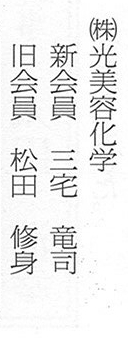 ㈱光美容化学
新会員　三宅　竜司
旧会員　松田　修身